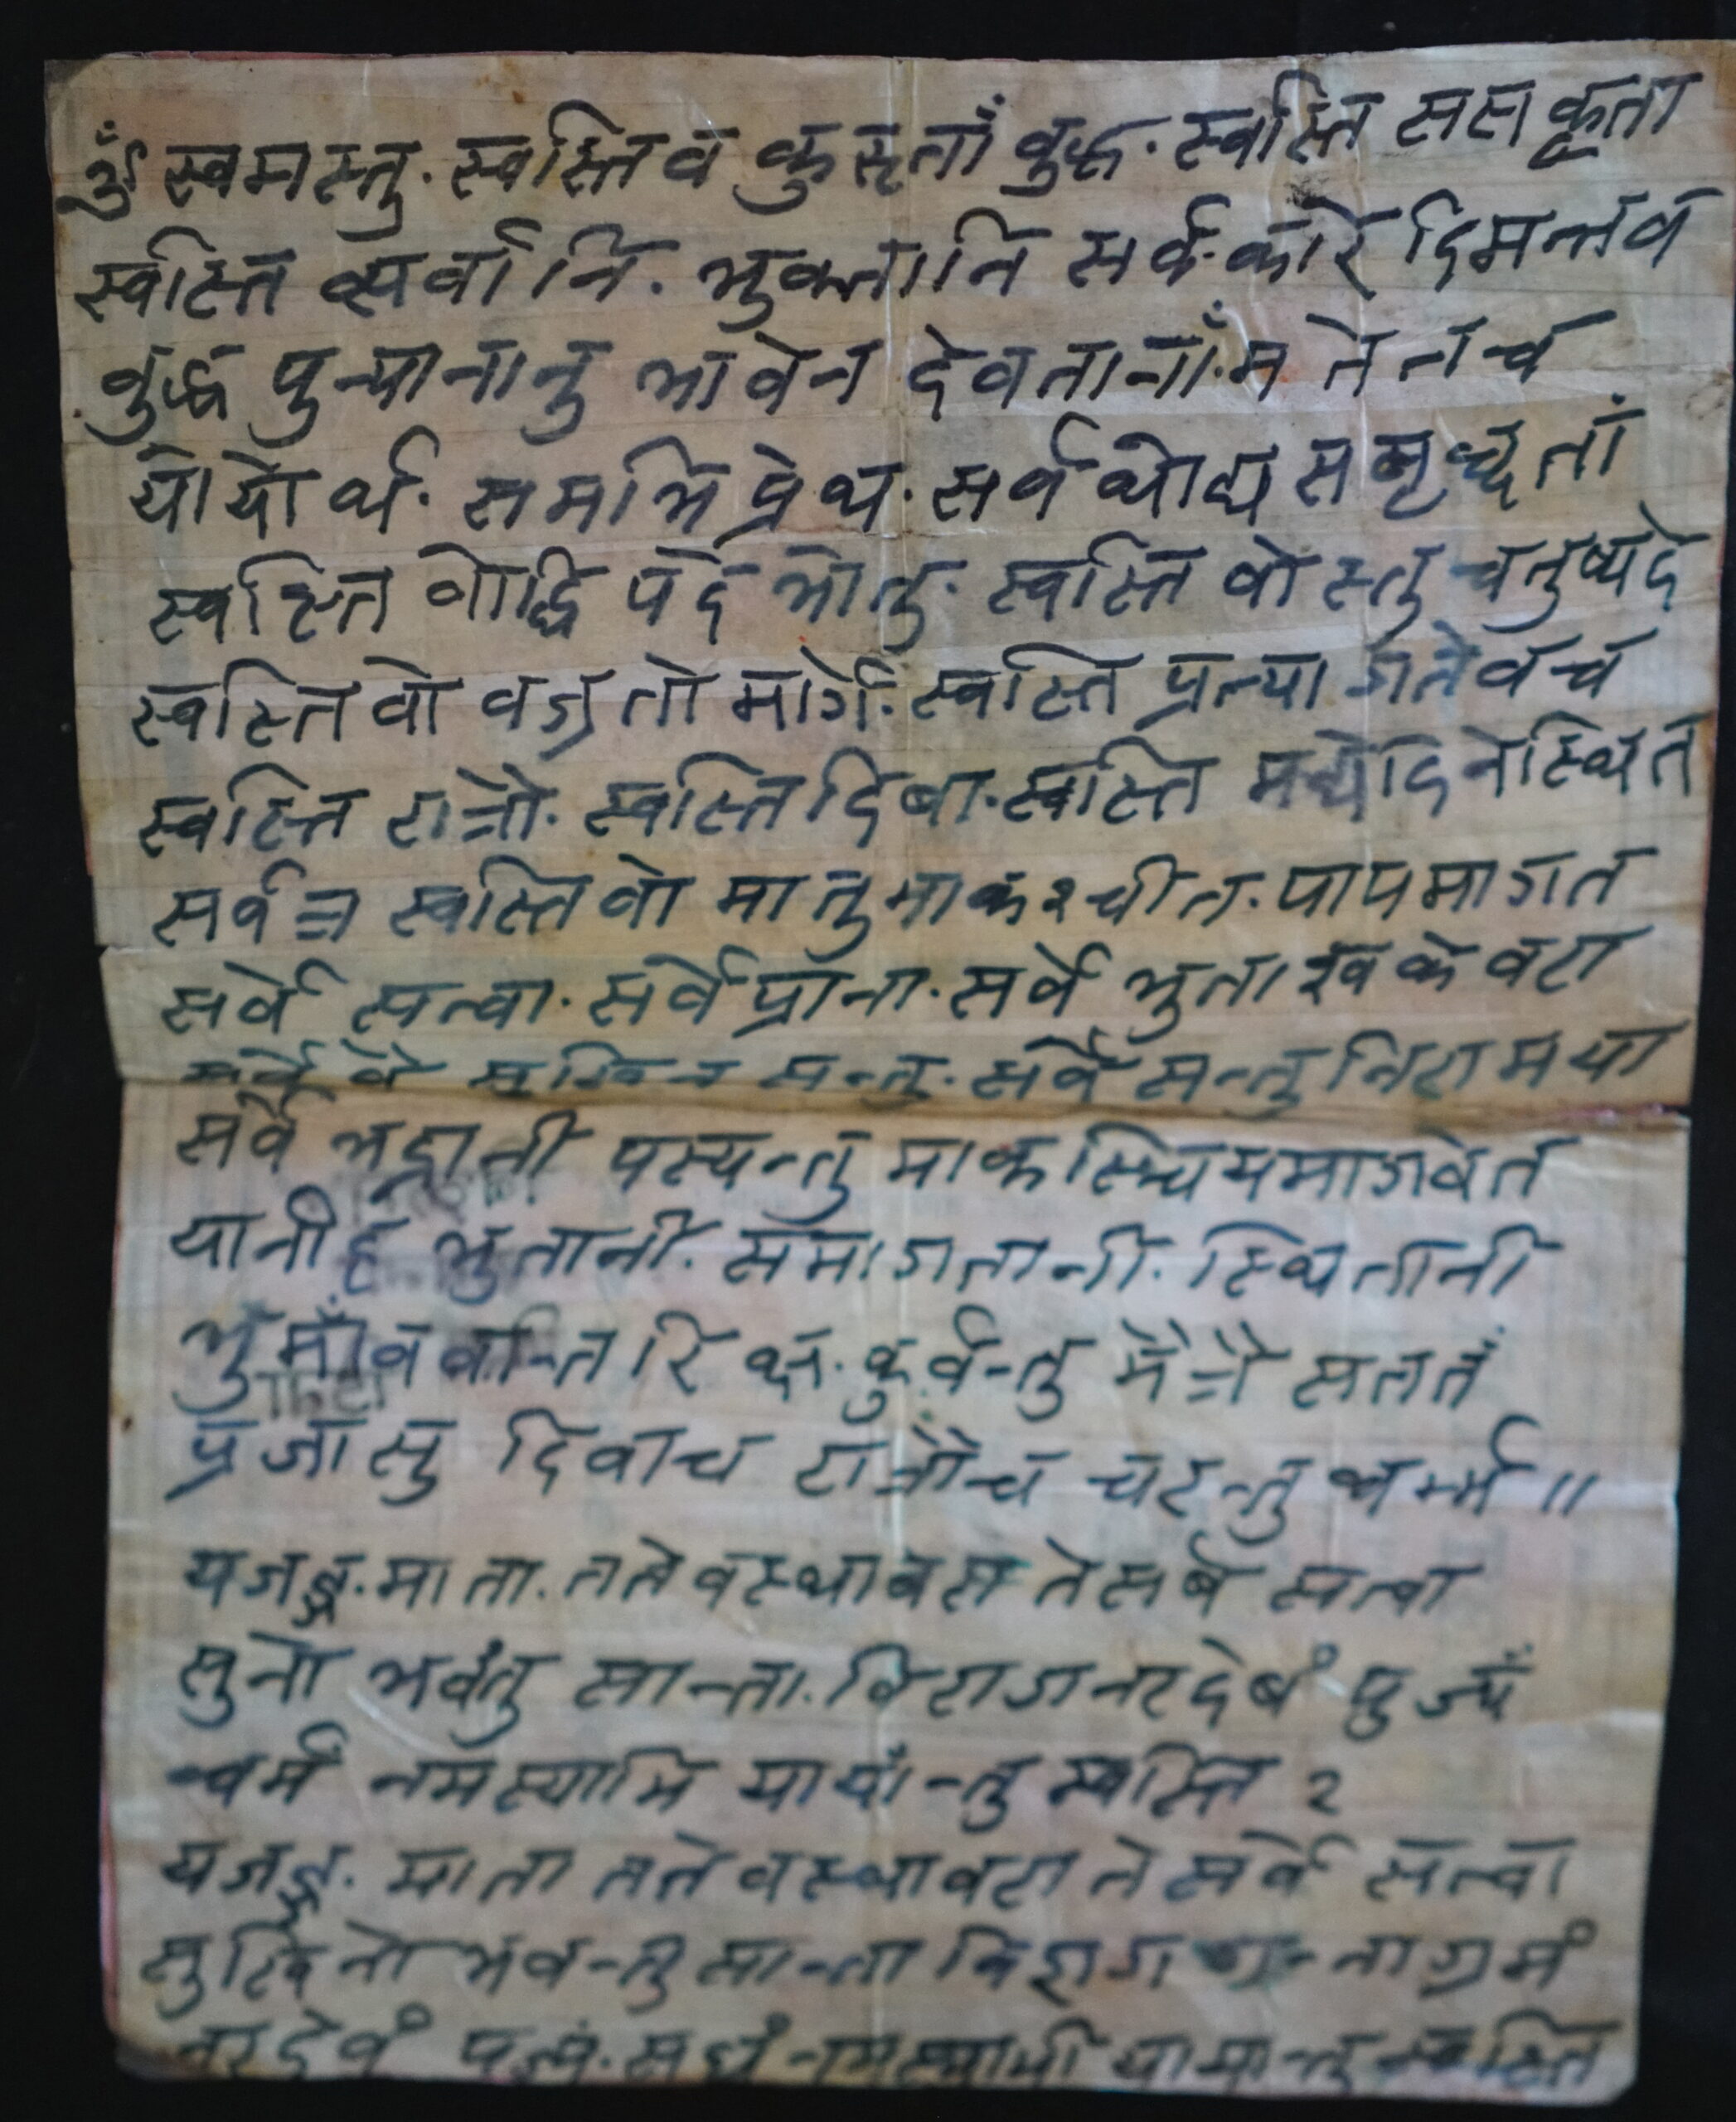 ॐ स्वमस्तु. स्वस्ति व कुरूतां वुद्ध. स्वस्ति सस कृता
स्वस्ति व्सर्वा नि. भुक्तानि सर्व. कारे दिमन्तव
वुद्ध पुन्यानानु भावेन देवतानां. म ते नर्च
योयो र्थ. समभि प्रेथ. सर्व थोद्य समृद्धतां
स्वस्ति वोद्धि पदे भोतु. स्वस्ति वो स्तु चतुष्पदे
स्वस्ति वो वज्रतो मार्गे. स्वस्ति प्रत्या गतेवच
स्वस्ति रात्रौ. स्वस्ति दिबा. स्वस्ति मध्येदिनेस्थित
सर्वत्र स्वस्ति वो मातुमाकंश्चीत. पापमागत
सर्वे सत्वा. सर्वे प्राना. सर्वे भुताश्व केवरा
सर्वे वे सुखिन सन्तु. सर्वे सन्तु निरामया
सर्वे भद्रानी पस्यन्तु माकस्चियमागवेत
यानीह भुतानी. समागतानी. स्थितानी
भुमौव वान्तरिक्ष. कुर्वन्तु मैत्रै सततं
प्रजासु दिवाच रात्रौच चरन्तु धर्म्म ॥
यजङ्ग. माता. तते वस्थावरा ते सर्वे सत्वा
सुनो भवंतु सान्ता. विराग नरदेबं पुज्यं
धर्मं नमस्यामि यायां न्तु स्वस्ति २
यजङ्ग. माता तते वस्थावरा ते सर्वे सत्वा
सुखिनो भवन्तु सान्ता विराग नाग्रमं
नरदेवं पुज्यं. सघं नमस्यामी यामान्तु स्वस्ति